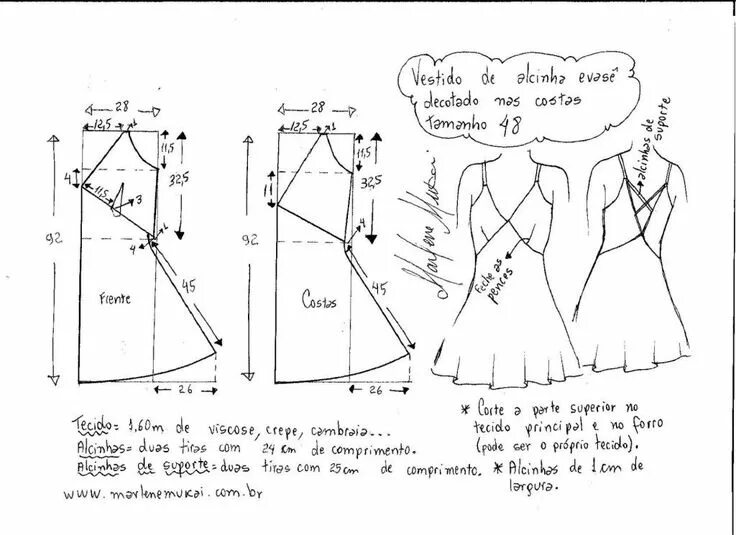 Vestido de alcinha evasê
decotado nas costas
tamanho 48
28
12,5
1
11,5
4
11,5
3
32,5
92
4
1
45
Frente
26
28
12,5
1
11,5
11
32,5
92
1
4
45
Costas
26
Marlene Mukai.
alcinhas de suporte
Feche as
pences
Tecido= 1,60m de viscose, crepe, cambraia...
Alcinhas= duas tiras com 24 cm de comprimento.
Alcinhas de suporte= duas tiras com 25cm de comprimento.
www.marlenemukai.com.br
* Corte a parte superior no
tecido principal e no forro
(pode ser o próprio tecido).
* Alcinhas de 1 cm de
largura.